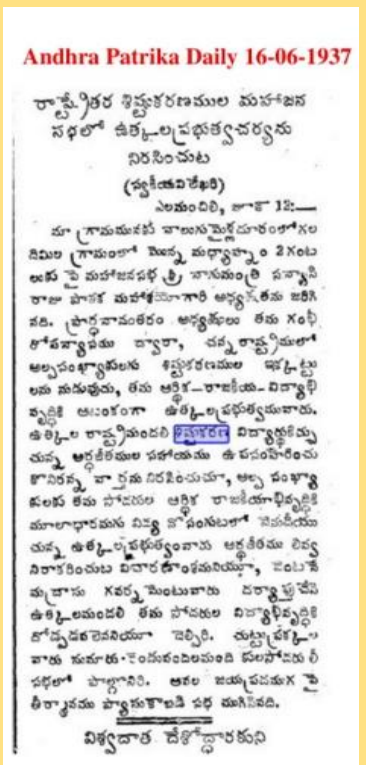 Andhra Patrika Daily 16-06-1937
రాష్ట్రేతర శిష్టుకరణముల మహాజన
సభలో ఉత్కల ప్రభుత్వచర్యను
నిరసించుట
(స్వకీయవిలేఖరి)
ఎలమంచిలి, జూన్ 12:—
మా గ్రామమునకు నాలుగుమైళ్లదూరంలోగల
దిమిల గ్రామంలో మొన్న మధ్యాహ్నం 2గంట
లకు పై మహాజనసభ శ్రీ
రాజు మహాశయులగారి అధ్యక్షతను జరిగి
నది. ప్రార్థనానంతరం అధ్యక్షులు తమ గంభీ
రోపన్యాసము ద్వారా, చిన్న రాష్ట్రములో
అల్పసంఖ్యాకులగు శిష్టుకరణముల ఇక్కట్టు
లను నుడువుచు, తమ ఆర్థిక-రాజకీయ-విద్యాభి
వృద్ధికి ఆటంకంగా ఉత్కల ప్రభుత్వమువారు.
ఉత్కల రాష్ట్రమందలి శిష్టుకరణ విద్యార్థులకిచ్చు
చున్న అర్థజీతముల సహాయము ఉపసంహరించు
కొనిరన్న వార్తను నిరసించుచూ, అల్ప సంఖ్యా
కులకు తమ సోదరుల ఆర్థిక రాజకీయాభివృద్ధికి
మూలాధారమగు విద్య
చున్న ఉత్కల ప్రభుత్వంవారు అర్థజీతము లివ్వ
నిరాకరించుట విచారణాంశమనియూ, వెంటనే
మద్రాసు గవర్న మెంటువారు దర్యాప్తుచేసి
ఉత్కలమందలి తమ సోదరుల విద్యాభివృద్ధికి
తోడ్పడవలెననియూ తెల్పిరి. చుట్టుప్రక్కల
వారు సుమారు రెండువందలమంది కులసోదరు లీ
సభలో పాల్గొనిరి. ఆవల జయప్రదముగ పై
తీర్మానము ప్యాసుకాబడి సభ ముగిసినది.
విశ్వదాత దేశోద్ధారకుని